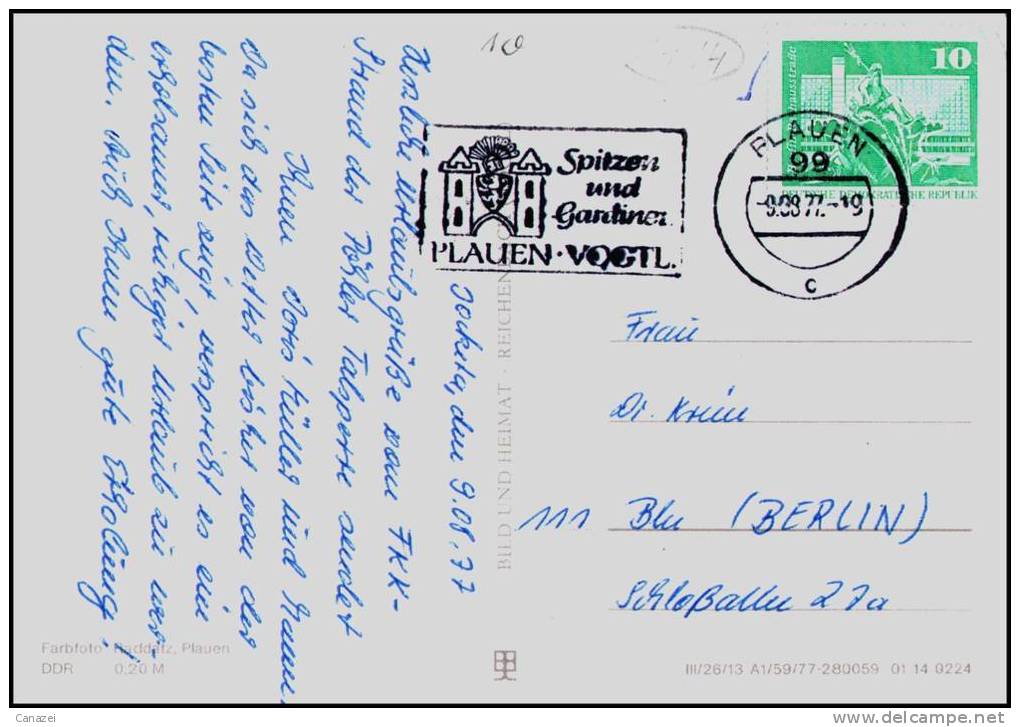 10
10
Neptunbrunnen Rathausstraße
DEUTSCHE DEMOKRATISCHE REPUBLIK
Spitzen
und
Gardinen
PLAUEN · VOGTL.
PLAUEN
99
-9.08.77.-19
c
Jocketa, den 9.08.77
Herzliche Urlaubsgrüße vom FKK-
Strand der Pöhler Talsperre sendet
Ihnen Doris Müller und Mann.
Da sich das Wetter bisher von der
besten Seite zeigt, verspricht es ein
erholsamer, ruhiger Urlaub zu wer-
den. Auch Ihnen gute Erholung!
Frau
Dr. Krün
111 Bln (BERLIN)
Schloßallee 27a
BILD UND HEIMAT · REICHEN
Farbfoto: Raddatz, Plauen
DDR 0,20 M
III/26/13 A1/59/77-280059 01 14 0224
Canazei
www.delcampe.net